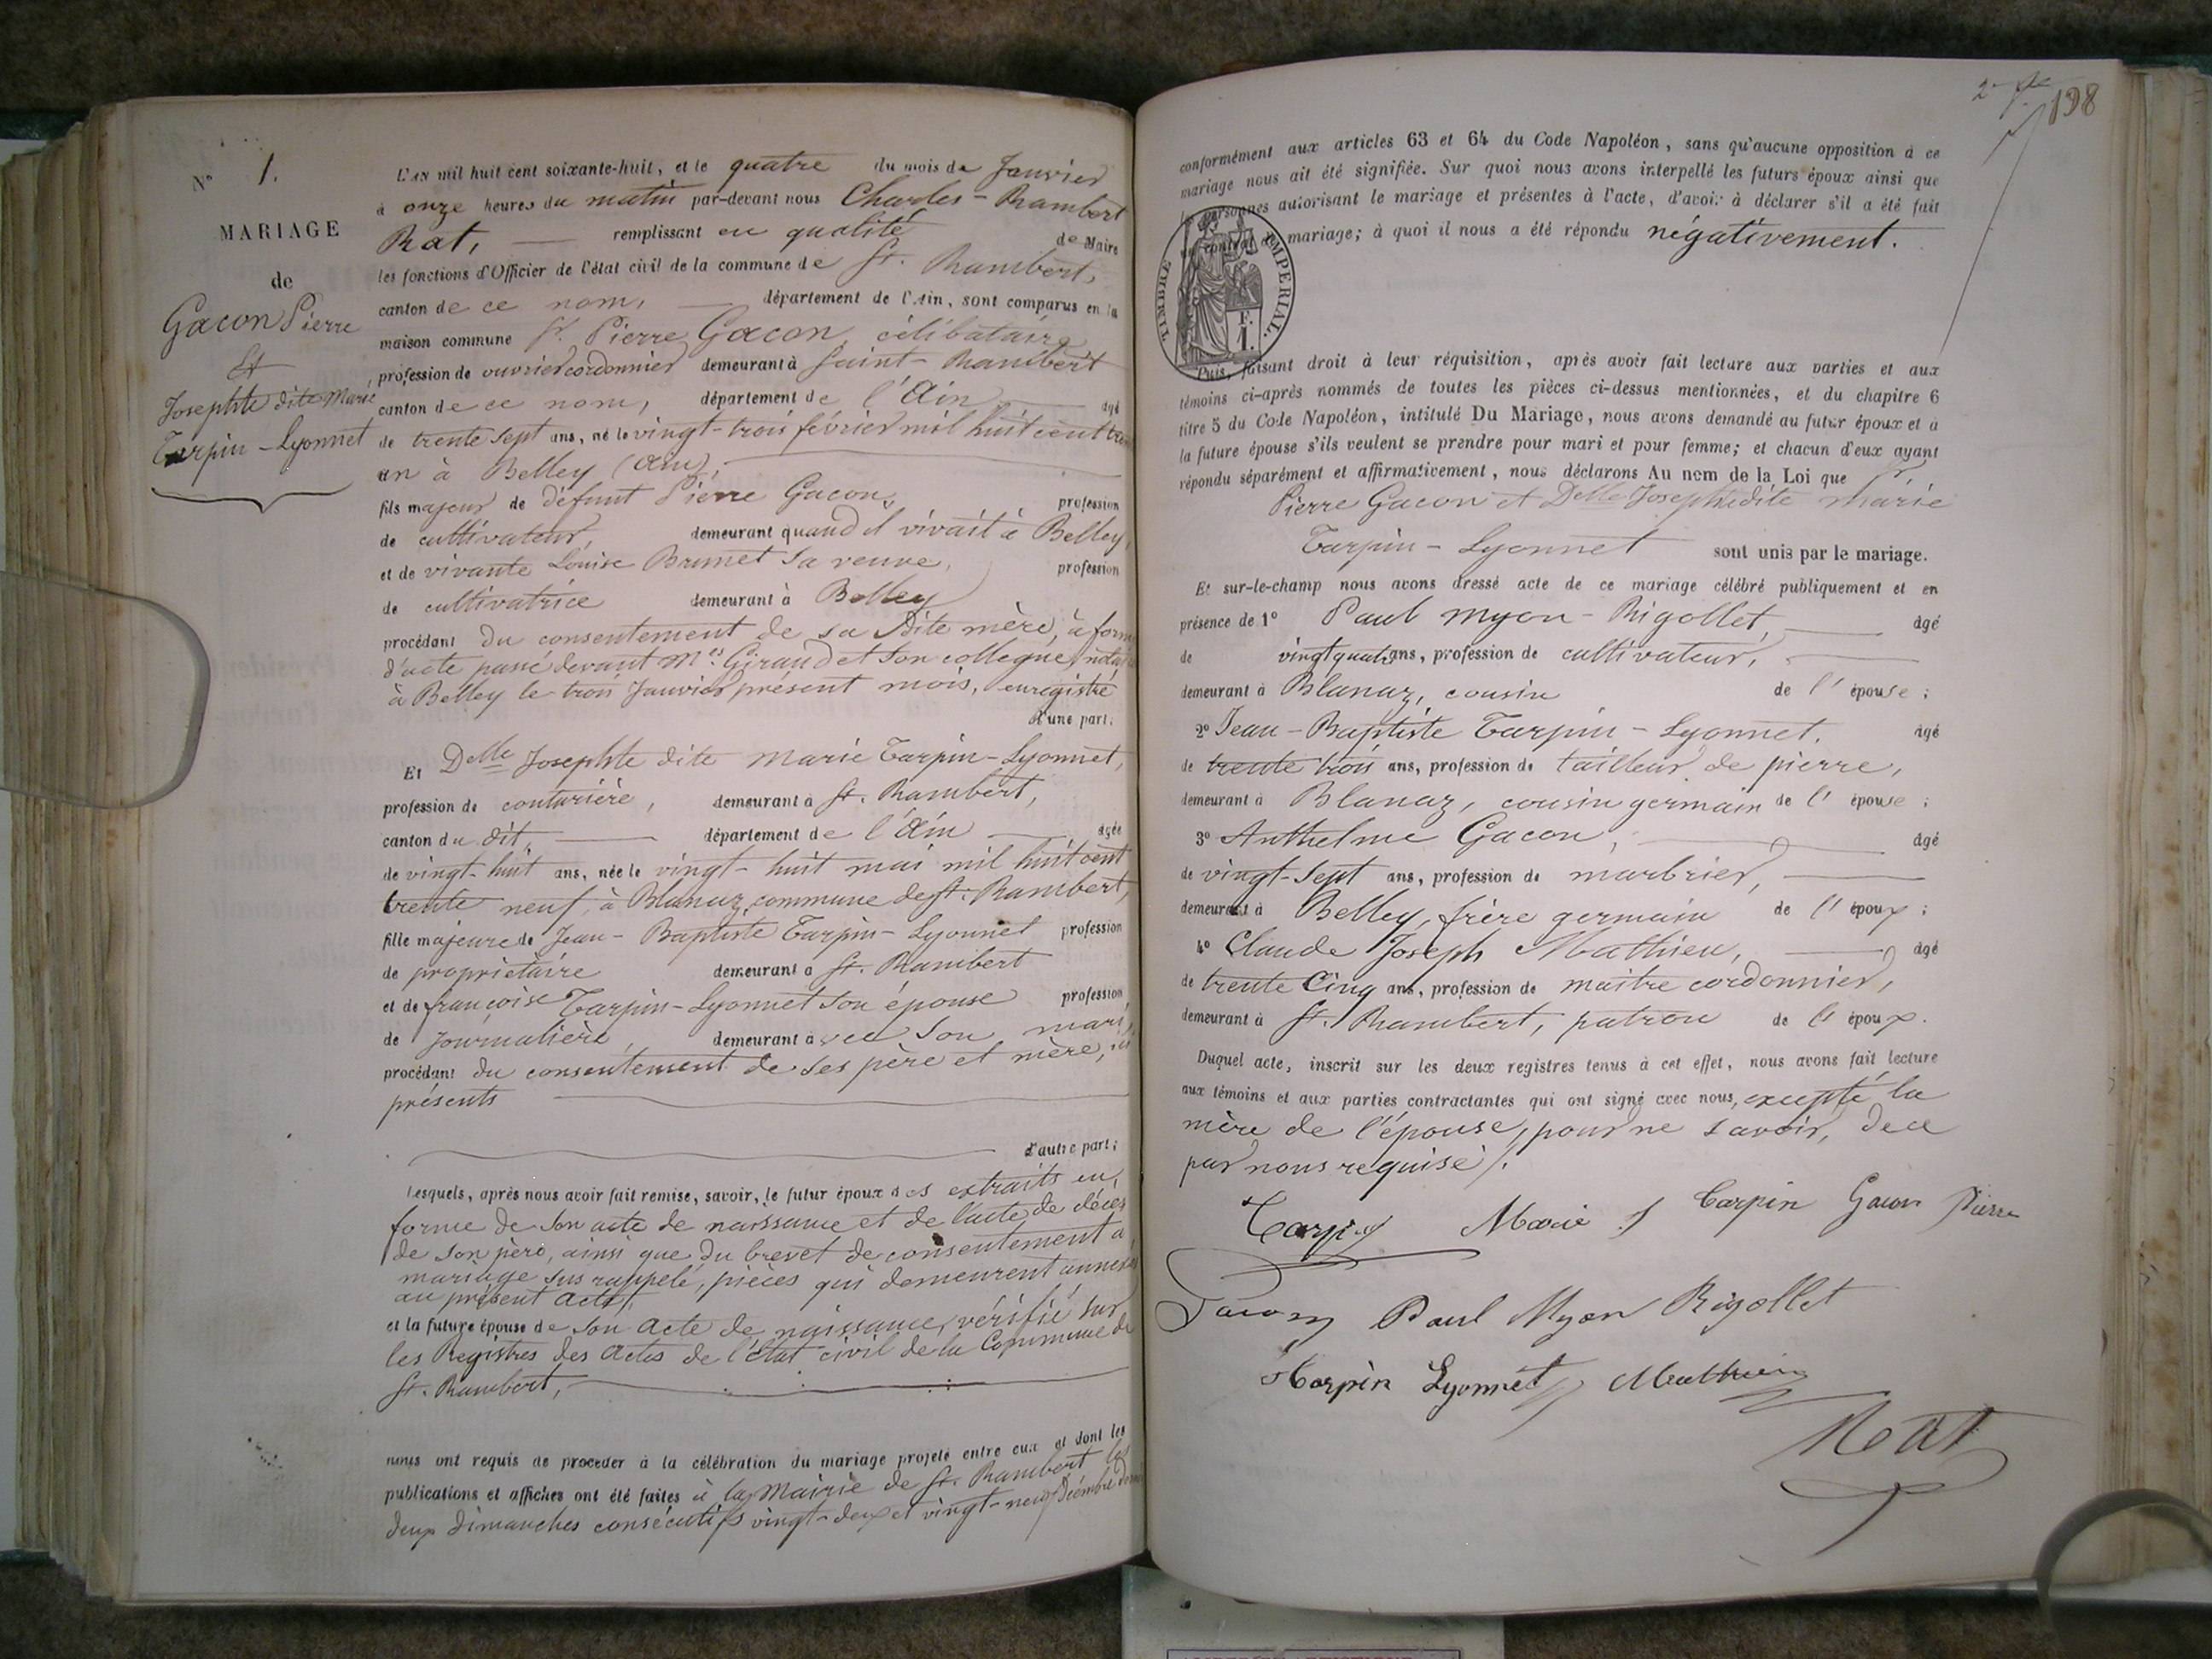 N° 1.
MARIAGE
de
Gacon Pierre
Et
Josephte dite Marie
Tarpin-Lyonnet
L'AN mil huit cent soixante-huit, et le quatre du mois de Janvier
à onze heures du matin par-devant nous Charles-Rambert
Rat, remplissant en qualité de Maire
les fonctions d'Officier de l'état civil de la commune de St. Rambert,
canton de ce nom, département de l'Ain, sont comparus en la
maison commune Sr. Pierre Gacon, célibataire
profession de ouvrier cordonnier demeurant à Saint-Rambert
canton de ce nom, département de l'Ain âgé
de trente sept ans, né le vingt-trois février mil huit cent trente
un à Belley (Ain),
fils majeur de défunt Pierre Gacon, profession
de cultivateur, demeurant quand il vivait à Belley,
et de vivante Louise Brunet sa veuve, profession
de cultivatrice demeurant à Belley
procédant du consentement de sa dite mère, à forme
d'acte passé devant Mes. Giraud et son collegue, notaires
à Belley le trois Janvier présent mois, enregistré
d'une part;
Et Delle Josephte dite Marie Tarpin-Lyonnet,
profession de couturière, demeurant à St. Rambert,
canton du dit, département de l'Ain âgée
de vingt-huit ans, née le vingt-huit mai mil huit cent
trente neuf, à Blanaz commune de St. Rambert,
fille majeure de Jean-Baptiste Tarpin-Lyonnet profession
de propriétaire demeurant à St. Rambert
et de françoise Tarpin-Lyonnet son épouse profession
de Journalière, demeurant avec son mari,
procédant du consentement de ses père et mère, ici
présents
d'autre part;
Lesquels, après nous avoir fait remise, savoir, le futur époux des extraits en
forme de son acte de naissance et de l'acte de décès
de son père, ainsi que du brevet de consentement à
mariage sus rappelé, pièces qui demeurent annexées
au présent acte,
et la future épouse de son acte de naissance, vérifié sur
les Registres des actes de l'état civil de la Commune de
St. Rambert,
nous ont requis de procéder à la célébration du mariage projeté entre eux et dont les
publications et affiches ont été faites à la Mairie de St. Rambert les
deux dimanches consécutifs vingt-deux et vingt-neuf Décembre dernier
198
conformément aux articles 63 et 64 du Code Napoléon, sans qu'aucune opposition à ce
mariage nous ait été signifiée. Sur quoi nous avons interpellé les futurs époux ainsi que
les personnes autorisant le mariage et présentes à l'acte, d'avoir à déclarer s'il a été fait
un contrat de mariage; à quoi il nous a été répondu négativement.
TIMBRE IMPERIAL.
1 F.
Puis, faisant droit à leur réquisition, après avoir fait lecture aux parties et aux
témoins ci-après nommés de toutes les pièces ci-dessus mentionnées, et du chapitre 6
titre 5 du Code Napoléon, intitulé Du Mariage, nous avons demandé au futur époux et à
la future épouse s'ils veulent se prendre pour mari et pour femme; et chacun d'eux ayant
répondu séparément et affirmativement, nous déclarons Au nom de la Loi que Sr.
Pierre Gacon et Delle Josephte dite Marie
Tarpin-Lyonnet sont unis par le mariage.
Et sur-le-champ nous avons dressé acte de ce mariage célébré publiquement et en
présence de 1° Paul Myon-Rigollet, âgé
de vingt quatre ans, profession de cultivateur,
demeurant à Blanaz, cousin de l'épouse;
2° Jean-Baptiste Tarpin-Lyonnet, âgé
de trente trois ans, profession de tailleur de pierre,
demeurant à Blanaz, cousin germain de l'épouse;
3° Anthelme Gacon, âgé
de vingt-sept ans, profession de marbrier,
demeurant à Belley, frère germain de l'époux;
4° Claude Joseph Mathieu, âgé
de trente Cinq ans, profession de maitre cordonnier,
demeurant à St. Rambert, patron de l'époux.
Duquel acte, inscrit sur les deux registres tenus à cet effet, nous avons fait lecture
aux témoins et aux parties contractantes qui ont signé avec nous, excepté la
mère de l'épouse, pour ne savoir, de ce
par nous requise/.
Tarpin Marie J Tarpin Gacon Pierre
Gacon Paul Myon Rigollet
Tarpin Lyonnet Mathieu
Rat